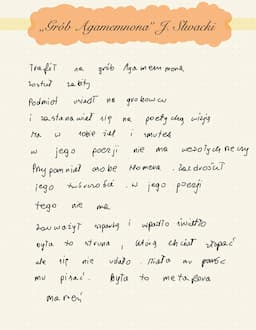 „Grób Agamemnona" J. Słowacki
Trafił na grób Agamemnona
został zabity
Podmiot usiadł na grobowcu
i zastanawiał się na poetycką wizją
Ma w sobie żal i smutek
w jego poezji nie ma wesołych rzeczy
Przypomniał sobie Homera. Zazdrościł
jego twórczości. w jego poezji
tego nie ma
Zauważył szparę i wpadło światło
była to struna, którą chciał złapać
ale się nie udało. Miała mu pomóc
mu pisać. Była to metafora
marzeń